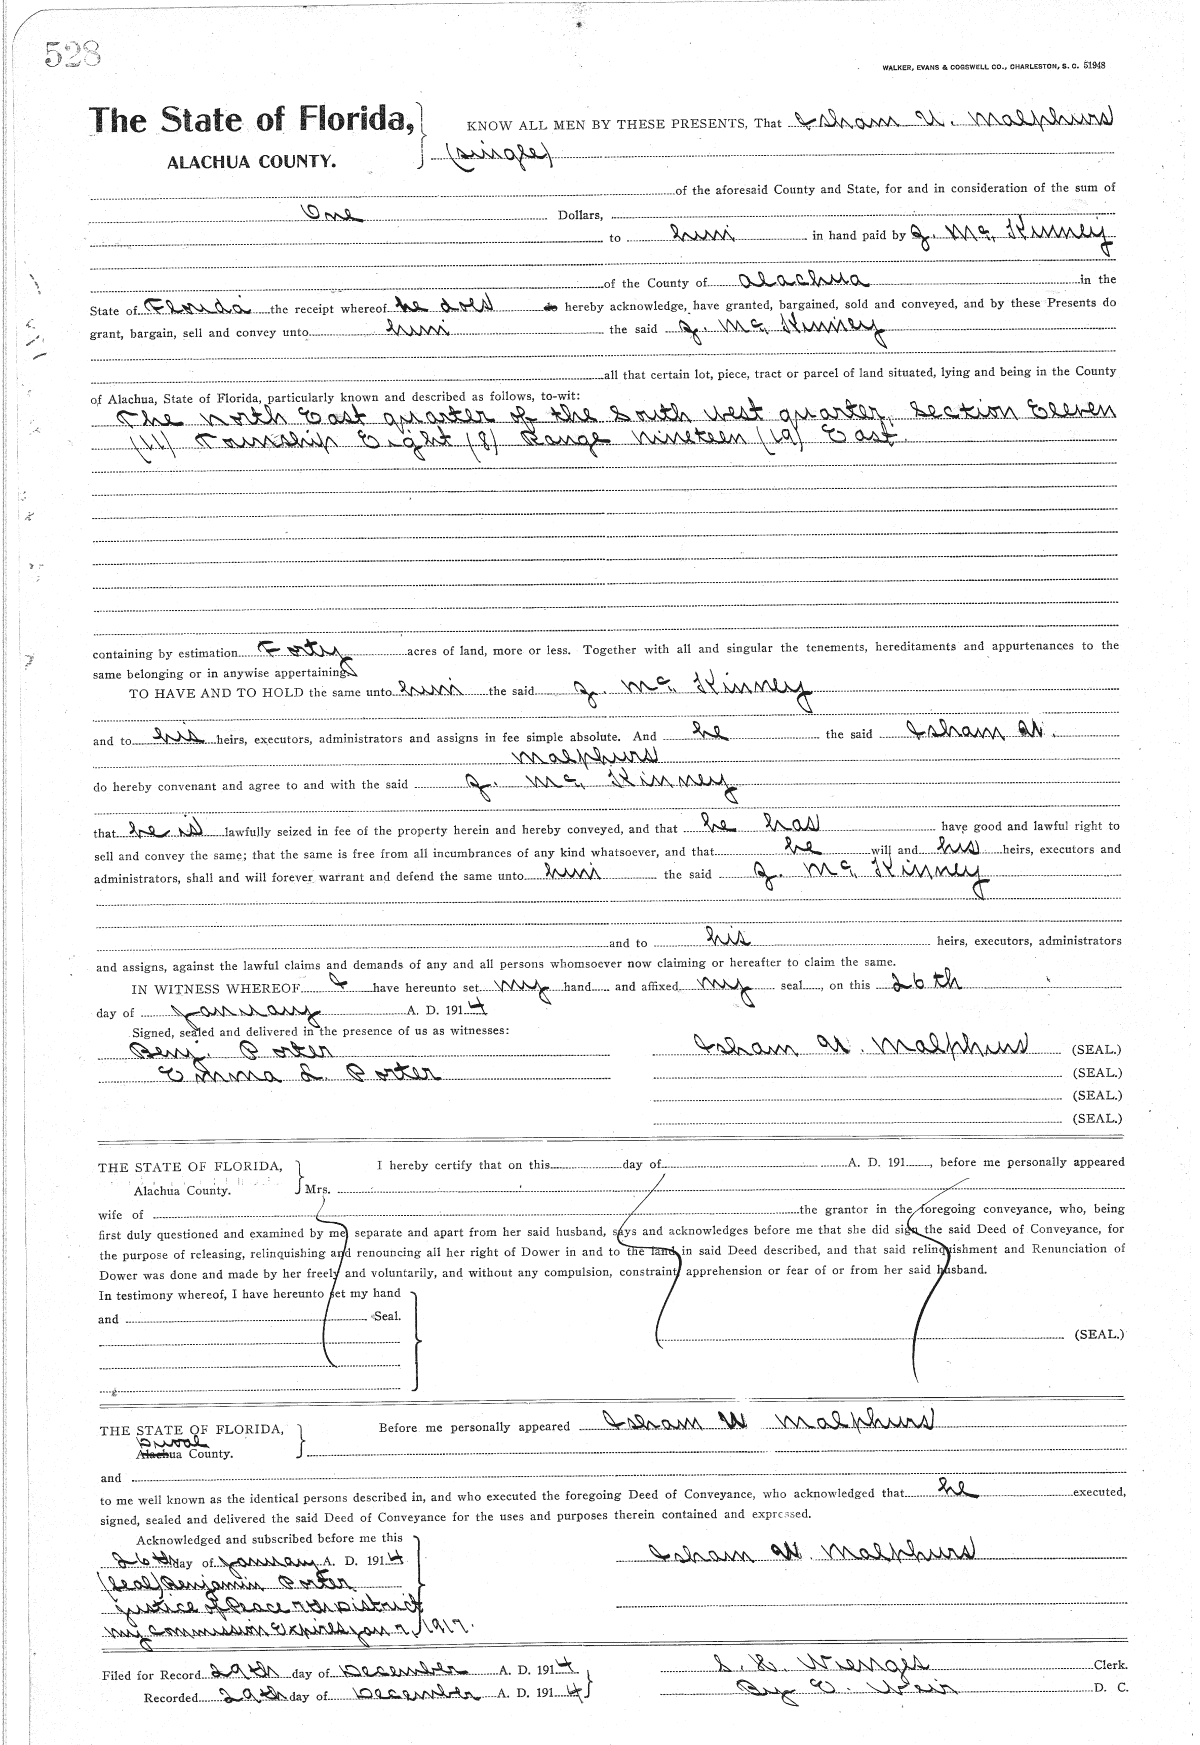 528
WALKER, EVANS & COGSWELL CO., CHARLESTON, S. C. 51948
The State of Florida, KNOW ALL MEN BY THESE PRESENTS, That Isham W. Malphurs
ALACHUA COUNTY. (single)
of the aforesaid County and State, for and in consideration of the sum of
One Dollars,
to him in hand paid by J. Mc, Kinney
of the County of Alachua in the
State of Florida the receipt whereof he does do hereby acknowledge, have granted, bargained, sold and conveyed, and by these Presents do
grant, bargain, sell and convey unto him the said J. Mc, Kinney
all that certain lot, piece, tract or parcel of land situated, lying and being in the County
of Alachua, State of Florida, particularly known and described as follows, to-wit:
The North East quarter of the South West quarter, Section Eleven
(11) Township Eight (8) Range nineteen (19) East.
containing by estimation Forty acres of land, more or less. Together with all and singular the tenements, hereditaments and appurtenances to the
same belonging or in anywise appertaining.
TO HAVE AND TO HOLD the same unto him the said J. Mc, Kinney
and to his heirs, executors, administrators and assigns in fee simple absolute. And he the said Isham W.
Malphurs
do hereby convenant and agree to and with the said J. Mc, Kinney
that he is lawfully seized in fee of the property herein and hereby conveyed, and that he has have good and lawful right to
sell and convey the same; that the same is free from all incumbrances of any kind whatsoever, and that he will and his heirs, executors and
administrators, shall and will forever warrant and defend the same unto him the said J. Mc, Kinney
and to his heirs, executors, administrators
and assigns, against the lawful claims and demands of any and all persons whomsoever now claiming or hereafter to claim the same.
IN WITNESS WHEREOF I have hereunto set my hand and affixed my seal, on this 26th
day of January A. D. 1914
Signed, sealed and delivered in the presence of us as witnesses:
Benj. Porter Isham W. Malphurs (SEAL.)
Emma L. Porter (SEAL.)
(SEAL.)
(SEAL.)
THE STATE OF FLORIDA, I hereby certify that on this day of A. D. 191 , before me personally appeared
Alachua County. Mrs.
wife of the grantor in the foregoing conveyance, who, being
first duly questioned and examined by me separate and apart from her said husband, says and acknowledges before me that she did sign the said Deed of Conveyance, for
the purpose of releasing, relinquishing and renouncing all her right of Dower in and to the land in said Deed described, and that said relinquishment and Renunciation of
Dower was done and made by her freely and voluntarily, and without any compulsion, constraint, apprehension or fear of or from her said husband.
In testimony whereof, I have hereunto set my hand
and Seal.
(SEAL.)
THE STATE OF FLORIDA, Before me personally appeared Isham W Malphurs
Duval
Alachua County.
and
to me well known as the identical persons described in, and who executed the foregoing Deed of Conveyance, who acknowledged that he executed,
signed, sealed and delivered the said Deed of Conveyance for the uses and purposes therein contained and expressed.
Acknowledged and subscribed before me this
26th day of January A. D. 1914 Isham W. Malphurs
(Seal) Benjamin Porter
Justice of Peace 7th District
My Commission Expires Jan 7, 1917.
Filed for Record 29th day of December A. D. 1914 Clerk.
Recorded 29th day of December A. D. 1914 By E. Weir D. C.